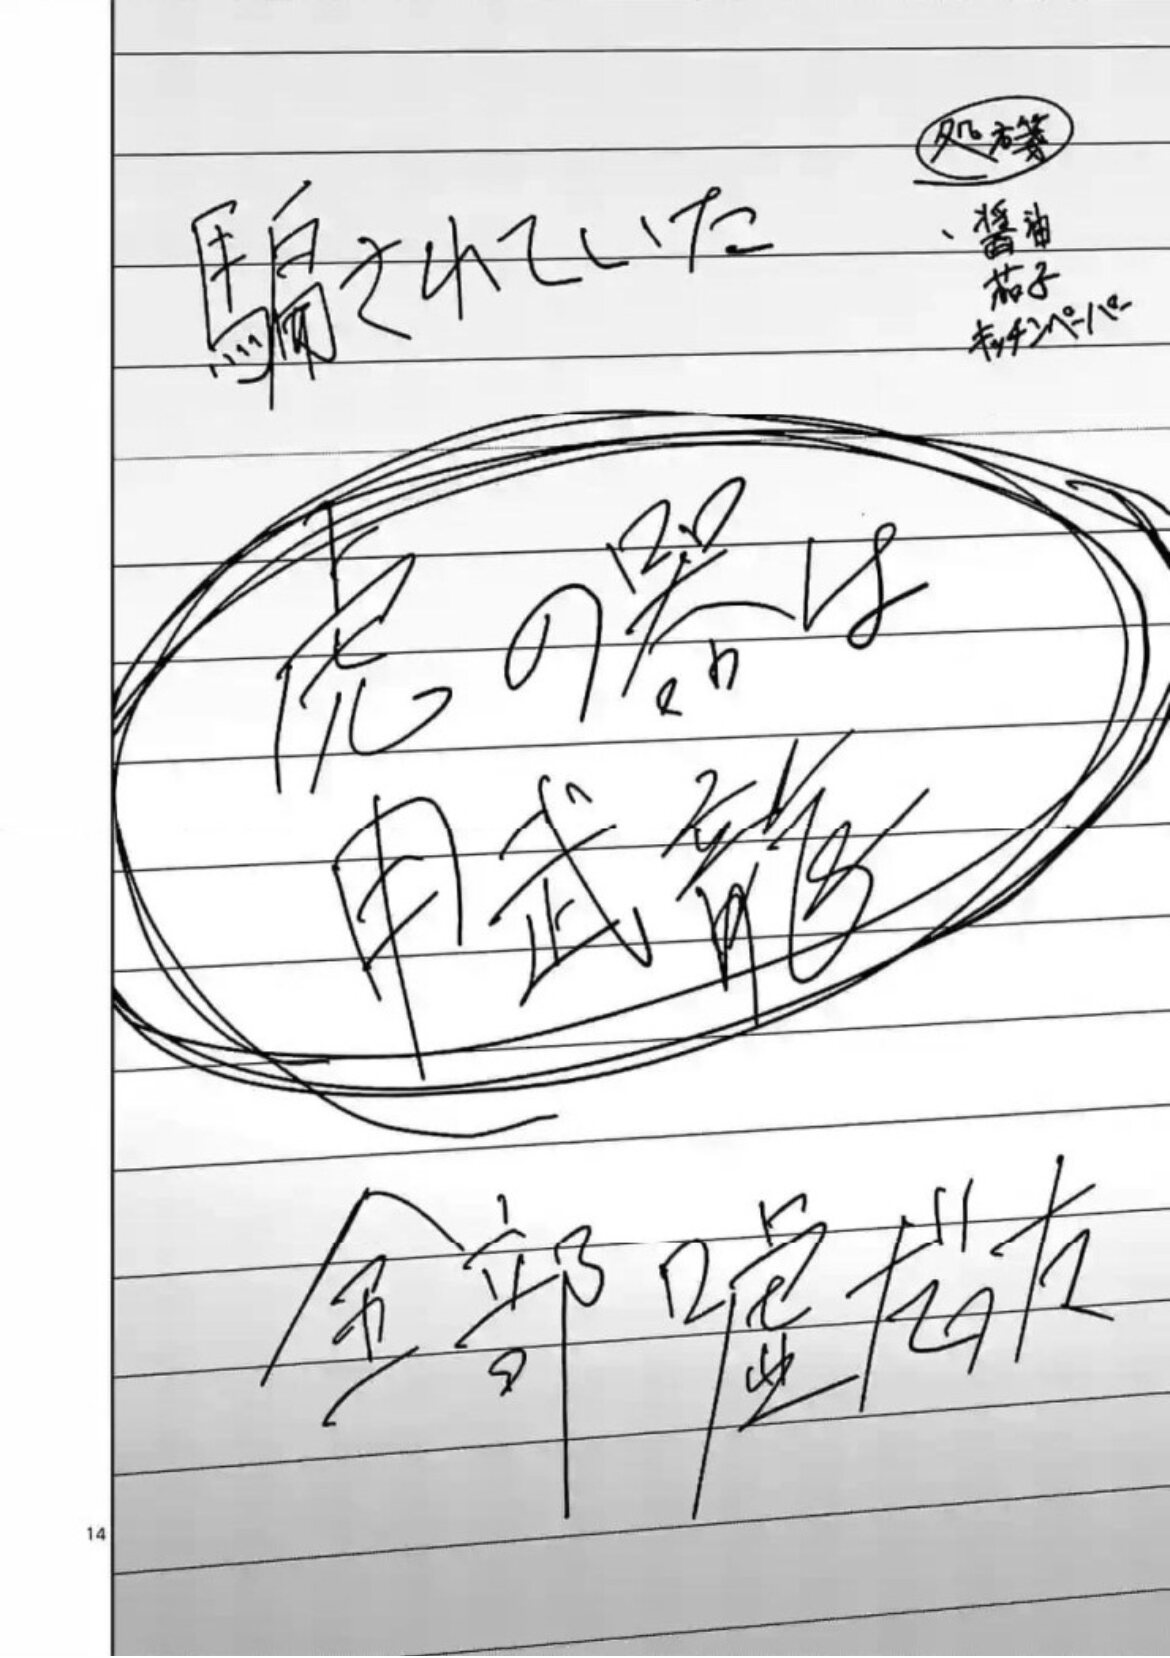 処方箋
騙されていた
、醤油
茄子
キッチンペーパー
虎の器は
甲武龍
全部嘘だった
14